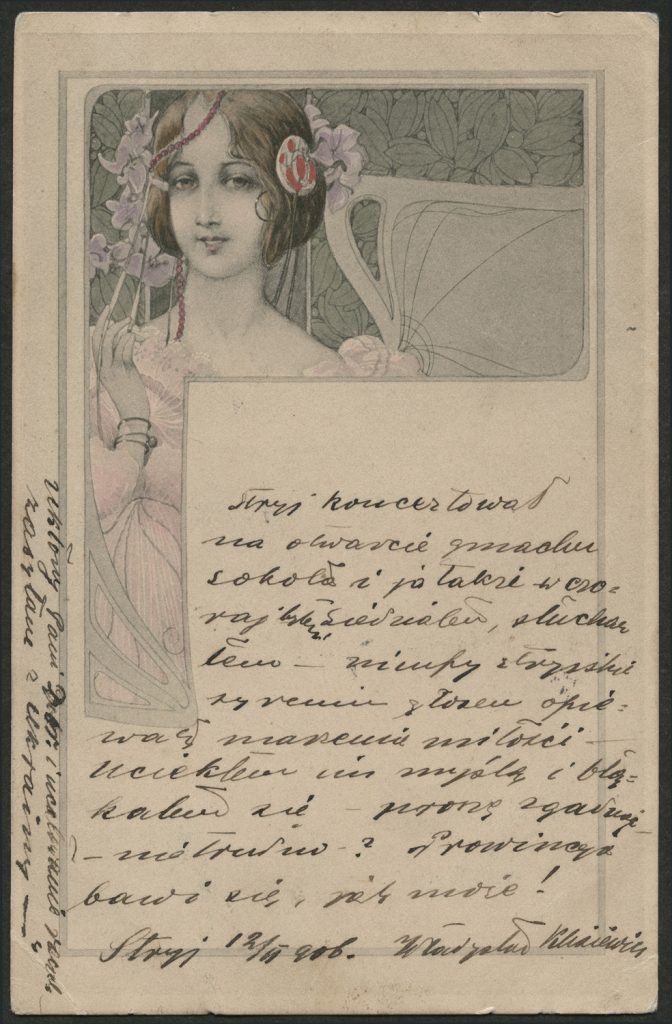 Stryj koncertował
na otwarcie gmachu
sokoła i ja także wczo-
raj siedziałem, słucha
łem — nimfy stryjskie
syrenim głosem opie-
wały marzenia miłości —
Uciekłem im myślą i błą-
kałem się — proszę
— nietrudno — ? Prowincya
bawi się, jak może!
Stryj 12/II 906. Władysław
Ukłony Pani i ucałowanie
zasyłam z Ukrainy —